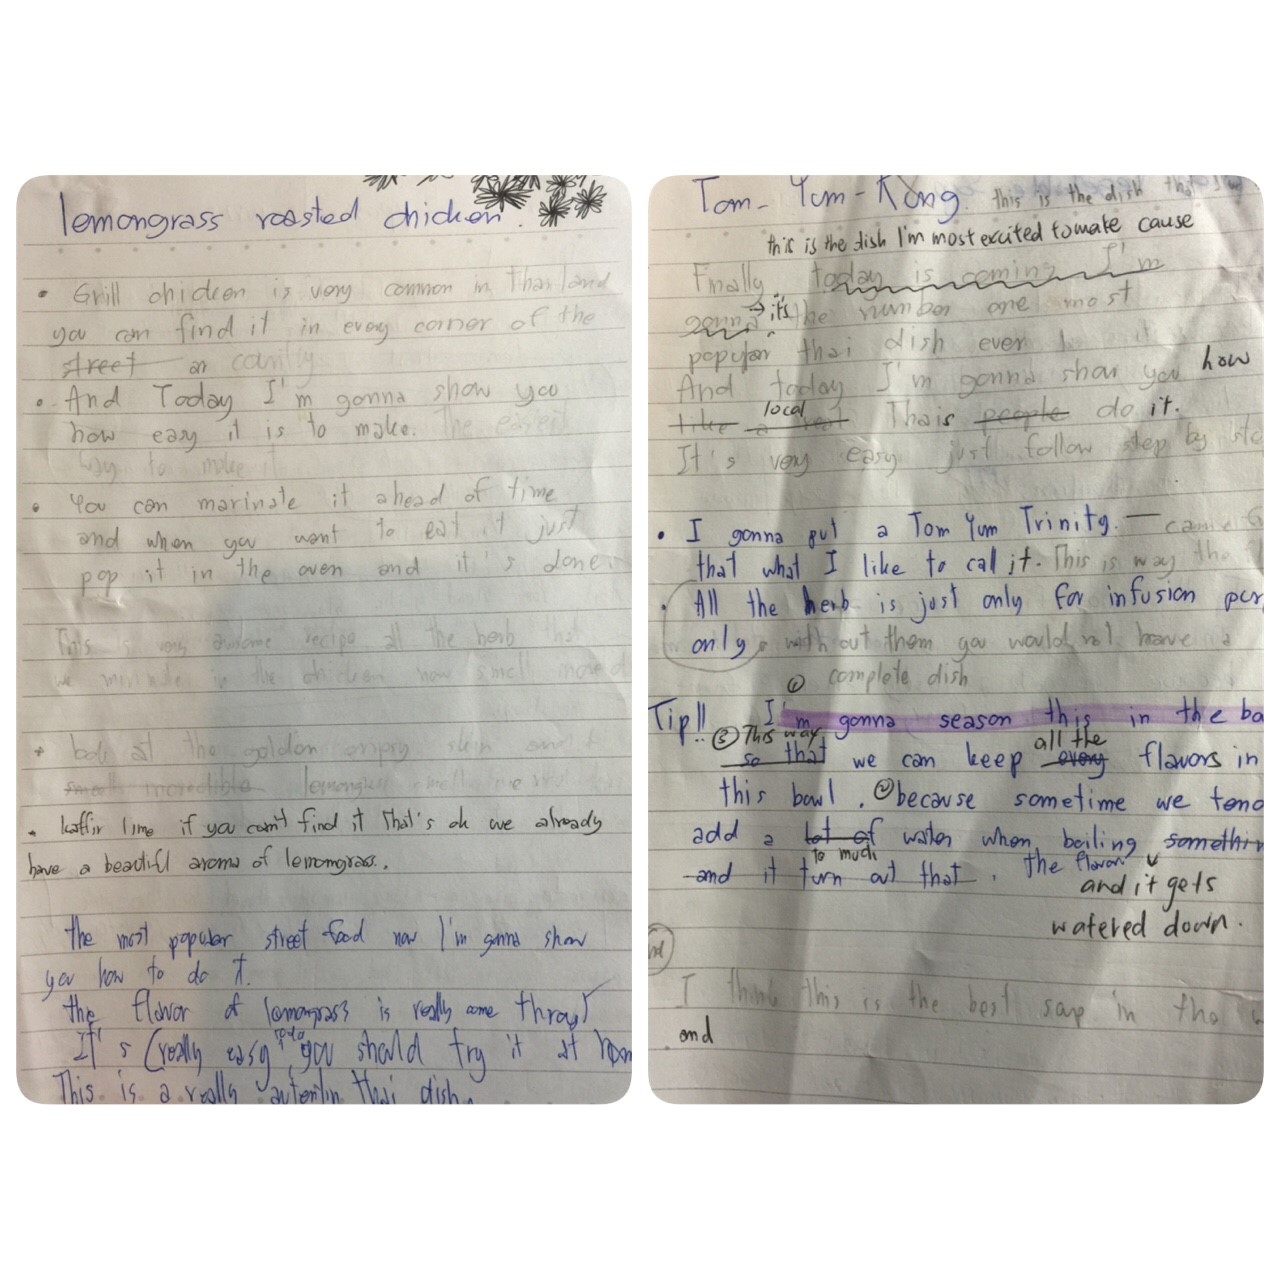 lemongrass roasted chicken.
• Grill chicken is very common in Thailand
you can find it in every corner of the
street
• And Today I'm gonna show you
how easy it is to make. The easiest
way to make it
• You can marinate it ahead of time
and when you want to eat it just
pop it in the oven and it's done.
This is very recipe all the herb that
we marinate in the chicken now smell
look at the golden skin
smell incredible lemongrass
• kaffir lime if you can't find it That's ok we already
have a beautiful aroma of lemongrass.
the most popular street food now I'm gonna show
you how to do it.
the flavor of lemongrass is really come throug
It's (really easy you should try it at hom
This is a really thai dish.
Tom-Yum-Kung. this is the dish that
this is the dish I'm most excited to make cause
Finally today is coming I'm
gonna → it's the number one most
popular thai dish ever
And today I'm gonna show you how
like a real local Thais people do it.
It's very easy just follow step by ste
• I gonna put a Tom Yum Trinity. —
that what I like to call it. This is way the
• All the herb is just only for infusion pur
only without them you would not have a
complete dish
Tip!! ① I'm gonna season this in the bo
③ This way
so that we can keep every all the flavors in
this bowl. ② because sometime we tend
add a lot of water when boiling somethin
to much
and it turn out that, the flavor
and it gets
watered down.
I think this is the best soup in the w
and